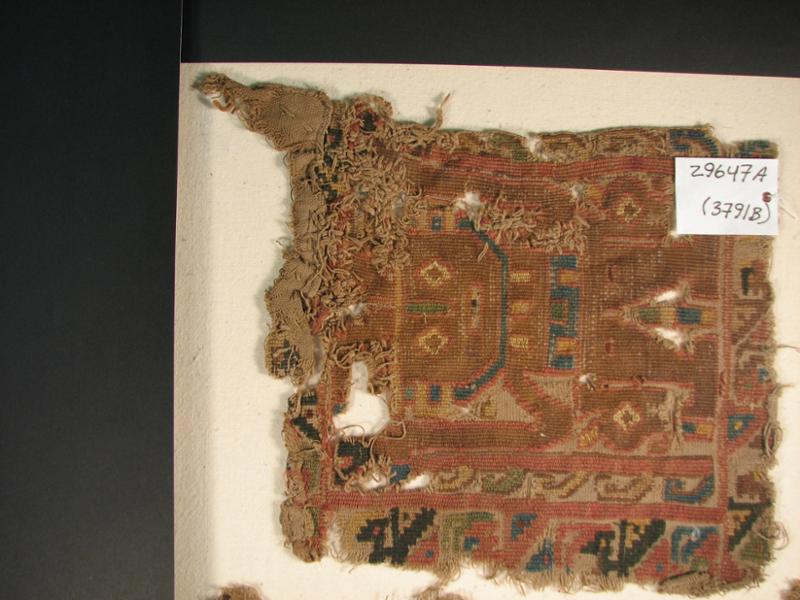 29647A
(3791B)